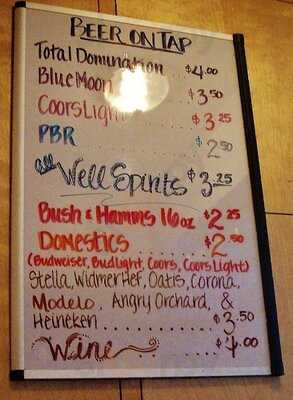 BEER ON TAP
Total Domination $4.00
Blue Moon ... $3.50
Coors Light .... $3.25
PBR ...... $2.50
all Well Spirits $3.25
Bush & Hamms 16oz $2.25
Domestics ....... $2.50
(Budweiser, Bud Light, Coors, Coors Light)
Stella, Widmer Hef, Oatis, Corona,
Modelo, Angry Orchard, &
Heineken ........ $3.50
Wine .... $4.00